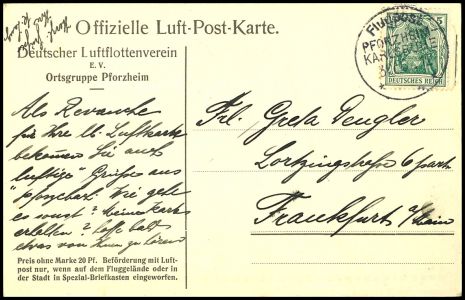 Offizielle Luft-Post-Karte.
Deutscher Luftflottenverein
E. V.
Ortsgruppe Pforzheim
FLUGPOST
PFORZHEIM
5
DEUTSCHES REICH
Als Revanche
für Ihre lb. Luftkarte
bekommen Sie auch
"luftige" Grüße aus
Wie geht
es sonst? Meine Karte
erhalten? Hoffe bald
etwas von Ihnen zu hören
Frl. Greta Dengler
Lortzingstraße 6 part
Frankfurt a/Main
Preis ohne Marke 20 Pf. Beförderung mit Luft-
post nur, wenn auf dem Fluggelände oder in
der Stadt in Spezial-Briefkasten eingeworfen.